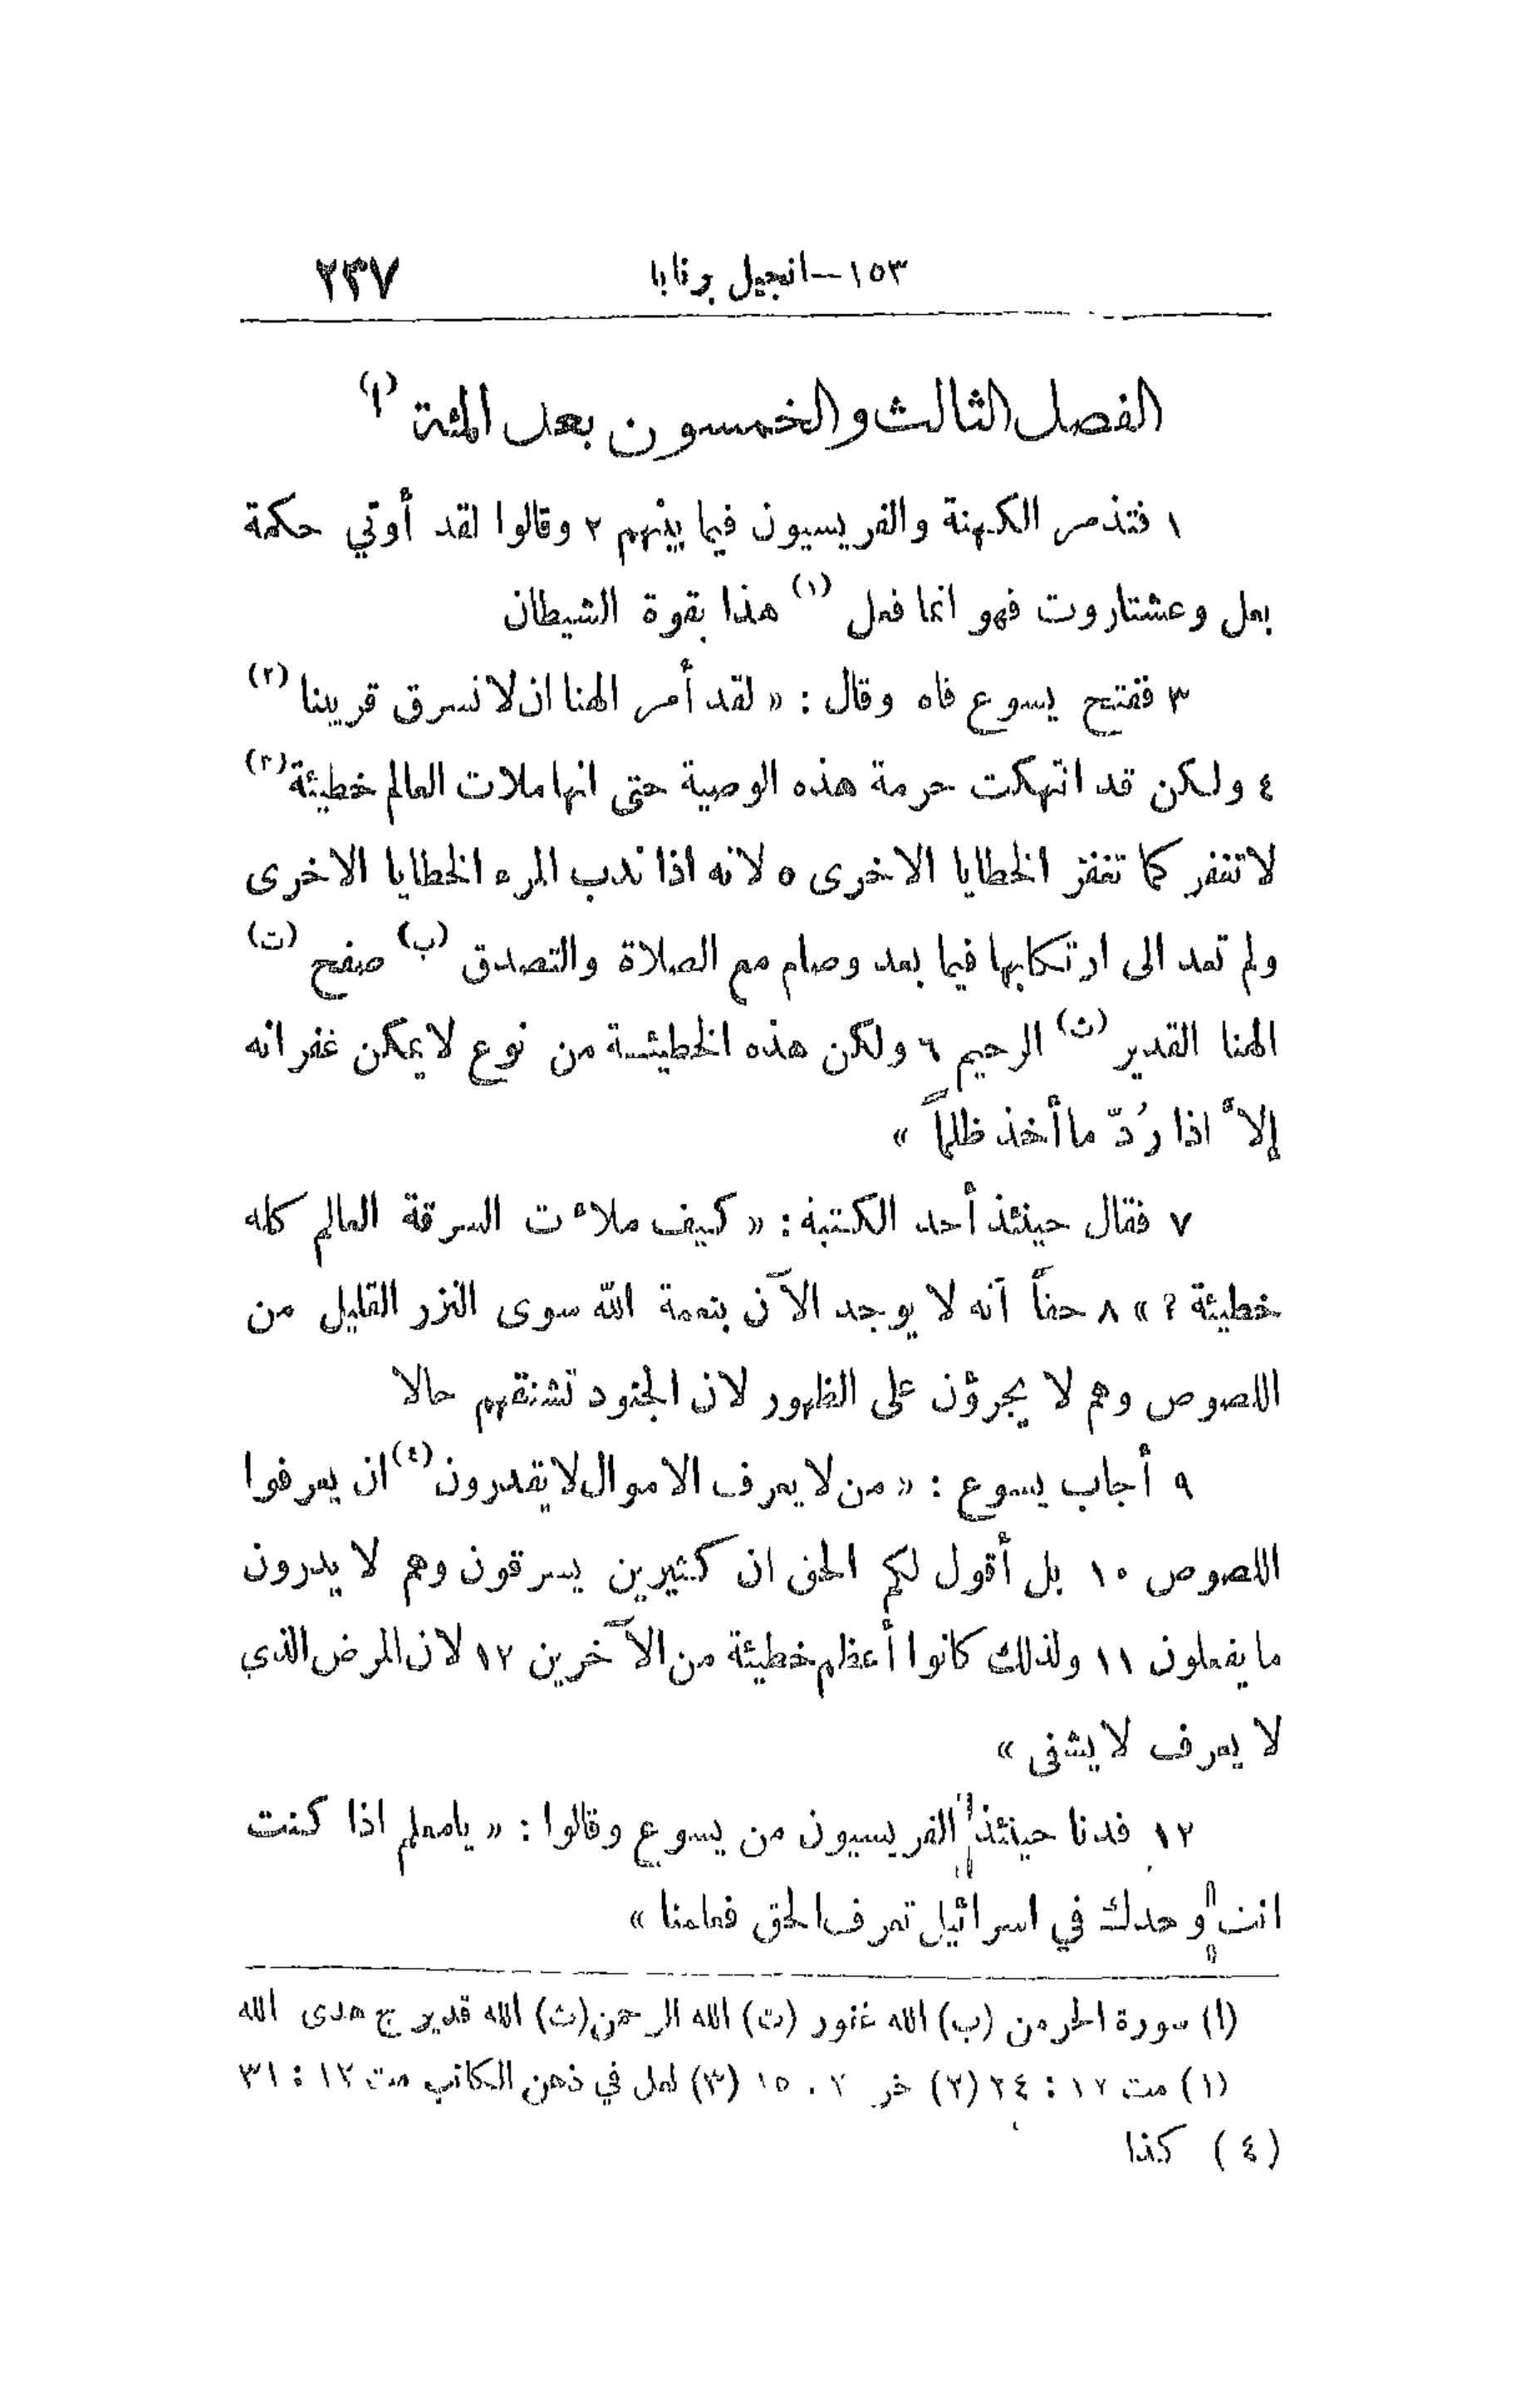 ١٥٣—انجيل برنابا ٢٣٧
الفصل الثالث والخمسون بعد المئة (ا)
١ فتذمر الكهنة والفريسيون فيما بينهم ٢ وقالوا لقد أوتي حكمة
بعل وعشتاروت فهو انما فعل (١) هذا بقوة الشيطان
٣ ففتح يسوع فاه وقال : « لقد أمر الهنا ان لا نسرق قريبنا (٢)
٤ ولكن قد انتهكت حرمة هذه الوصية حتى انها ملات العالم خطيئة (٣)
لا تغفر كما تغفر الخطايا الاخرى ٥ لانه اذا ندب المرء الخطايا الاخرى
ولم تعد الى ارتكابها فيما بعد وصام مع الصلاة والتصدق (ب) صفح (ت)
الهنا القدير (ث) الرحيم ٦ ولكن هذه الخطيئة من نوع لا يمكن غفرانه
إلا اذا رُدّ ما أخذ ظلماً »
٧ فقال حينئذ أحد الكتبة : « كيف ملاءت السرقة العالم كله
خطيئة ؟ » ٨ حقاً أنه لا يوجد الآن بنعمة الله سوى النزر القليل من
اللصوص وهم لا يجرؤن على الظهور لان الجنود تشنقهم حالا
٩ أجاب يسوع : « من لا يعرف الاموال لا يقدرون (٤) ان يعرفوا
اللصوص ١٠ بل أقول لكم الحق ان كثيرين يسرقون وهم لا يدرون
ما يفعلون ١١ ولذلك كانوا أعظم خطيئة من الآخرين ١٢ لان المرض الذي
لا يعرف لا يشفى »
١٢ فدنا حينئذ الفريسيون من يسوع وقالوا : « يا معلم اذا كنت
انت وحدك في اسرائيل تعرف الحق فعلمنا »
(ا) سورة الحرمن (ب) الله غفور (ت) الله الرحمن (ث) الله قدير ج هدى الله
(١) مت ١٢ : ٢٤ (٢) خر ٢٠ . ١٥ (٣) لعل في ذهن الكاتب مت ١٢ : ٣١
(٤) كذا